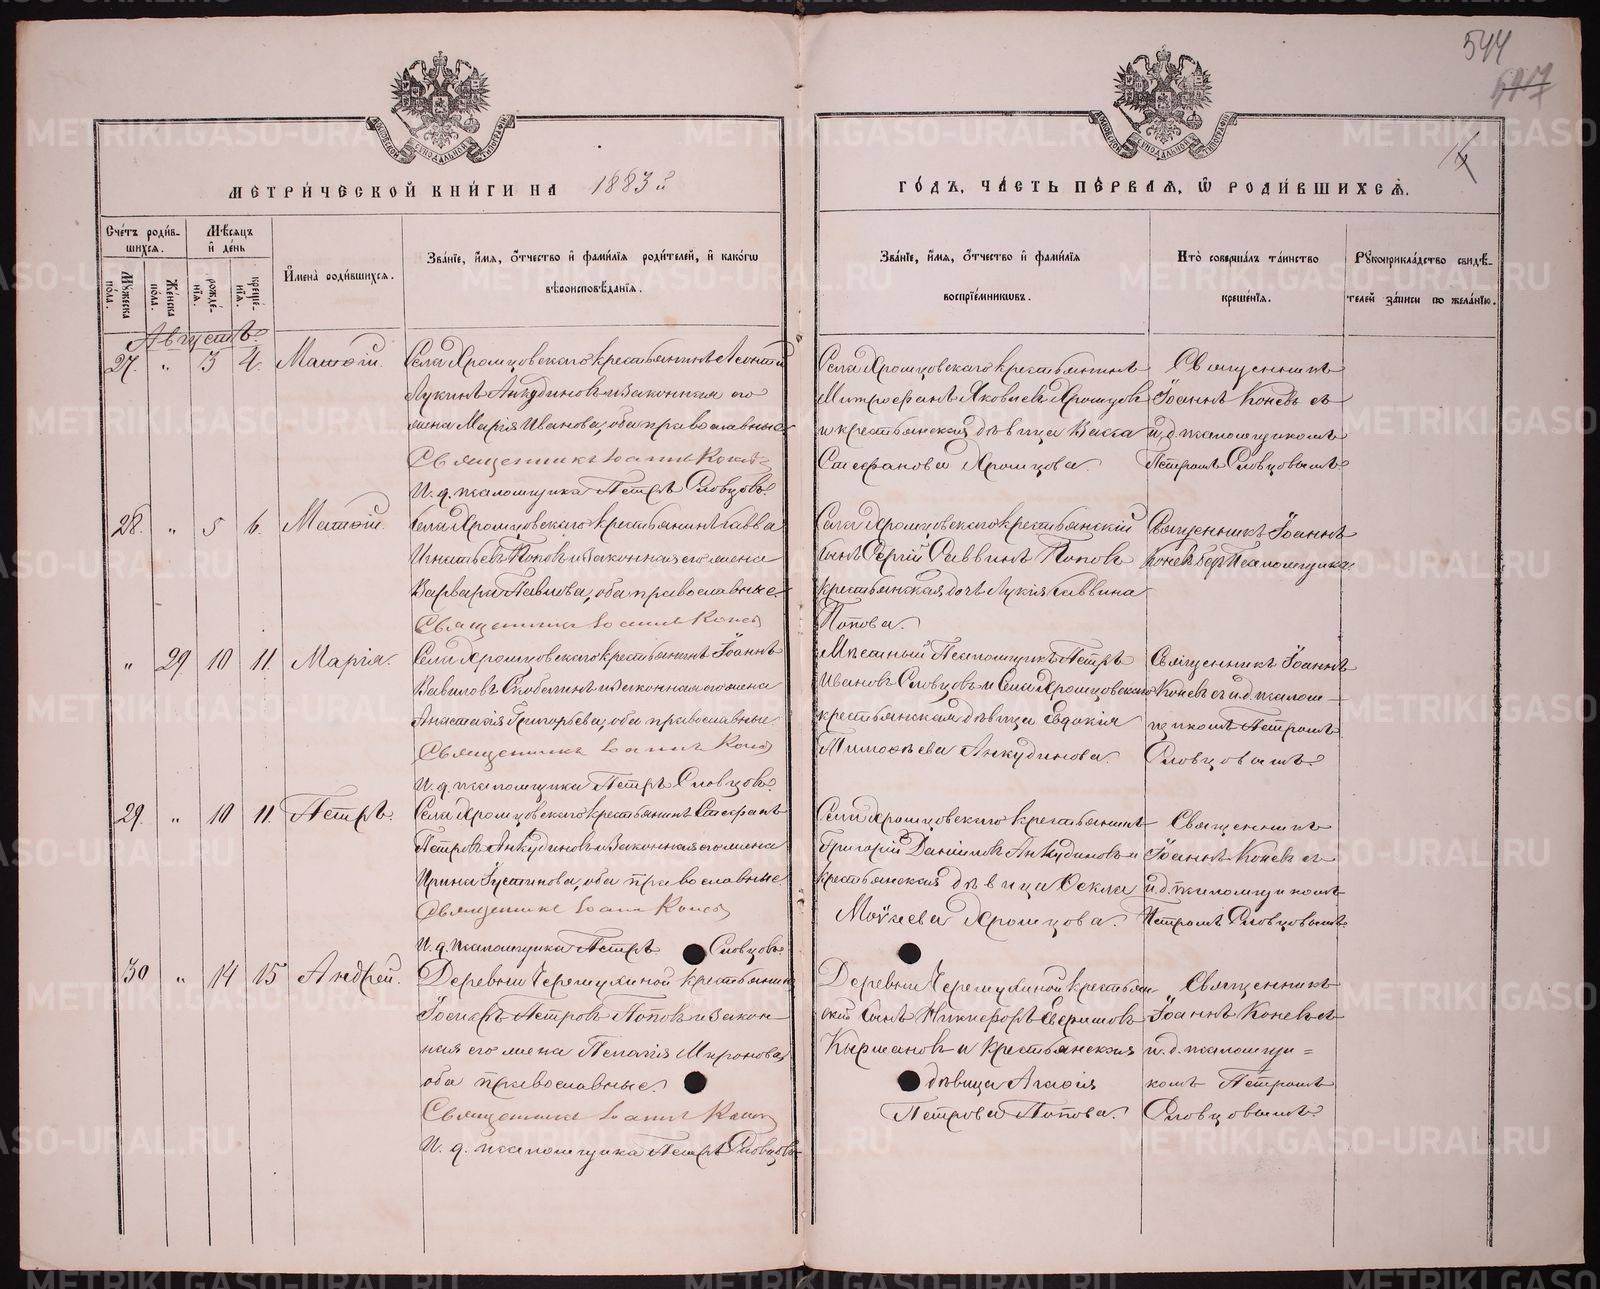 544
МЕТРИ́ЧЕСКОЙ КНИ́ГИ НА 1883й
ГО́ДЪ, ЧА́СТЬ ПЕ́РВАѦ, Ѡ РОДИ́ВШИХСѦ.
Сче́тъ роди́в-
шихся.
Мѣ́сяцъ
и́ де́нь
Мꙋ́жеска по́ла.
Же́нска по́ла.
рожде́-
нїя.
креще́-
нїя.
И҆мена̀ роди́вшихся.
Зва́нїе, и҆́мя, о҆́тчество и҆ фами́лїя роди́телей, и҆ како́гѡ
вѣроисповѣ́данїя.
Зва́нїе, и҆́мя, о҆́тчество и҆ фами́лїя
воспрїе́мниковъ.
Кто̀ соверша́лъ та́инство
креще́нїя.
Рꙋкоприкла́дство свидѣ́-
телей за́писи по жела́нїю.
Августъ.
27. " 3 4. Матѳій.
Села Хромцовскаго крестьянинъ Леонтій
Лукинъ Анкудиновъ и законная его
жена Марія Иванова, оба православные.
Священникъ Іоаннъ Коневъ
И. д. псаломщика Петръ Словцовъ.
Села Хромцовскаго крестьянинъ
Митрофанъ Яковлевъ Хромцовъ
и крестьянская дѣвица Васса
Стефанова Хромцова.
Священникъ
Іоаннъ Коневъ съ
и. д. псаломщикомъ
Петромъ Словцовымъ.
28. " 5 6. Матѳій.
Села Хромцовскаго крестьянинъ Савва
Игнатьевъ Поповъ и законная его жена
Варвара Павлова, оба православные.
Священникъ Іоаннъ Коневъ
Села Хромцовскаго крестьянскій
сынъ Сергій Саввинъ Поповъ
крестьянская дочь Лукія Саввина
Попова.
Священникъ Іоаннъ
Коневъ безъ Псаломщика.
" 29 10 11. Марія.
Села Хромцовскаго крестьянинъ Іоаннъ
Вавиловъ Скобелинъ и законная его жена
Анастасія Григорьева, оба православные.
Священникъ Іоаннъ Коневъ
И. д. псаломщика Петръ Словцовъ.
Мѣстный Псаломщикъ Петръ
Ивановъ Словцовъ и Села Хромцовскаго
крестьянская дѣвица Евдокія
Тимоѳеева Анкудинова.
Священникъ Іоаннъ
Коневъ съ и. д. псалом-
щикомъ Петромъ
Словцовымъ.
29. " 10 11. Петръ.
Села Хромцовскаго крестьянинъ Стефанъ
Петровъ Анкудиновъ и законная его жена
Ирина Іустинова, оба православные.
Священникъ Іоаннъ Коневъ
И. д. псаломщика Петръ Словцовъ.
Села Хромцовскаго крестьянинъ
Григорій Даніиловъ Анкудиновъ и
крестьянская дѣвица Ѳекла
Моѵсеева Хромцова.
Священникъ
Іоаннъ Коневъ съ
и. д. псаломщикомъ
Петромъ Словцовымъ.
30 " 14 15 Андрей.
Деревни Черемухиной крестьянинъ
Іосифъ Петровъ Поповъ и закон-
ная его жена Пелагія Миронова,
оба православные.
Священникъ Іоаннъ Коневъ
И. д. псаломщика Петръ Словцовъ
Деревни Черемухиной крестьян-
скій сынъ Никифоръ Ефимовъ
Кырчановъ и крестьянская
дѣвица Агафія
Петрова Попова.
Священникъ
Іоаннъ Коневъ съ
и. д. псаломщи=
комъ Петромъ
Словцовымъ.
METRIKI.GASO-URAL.RU